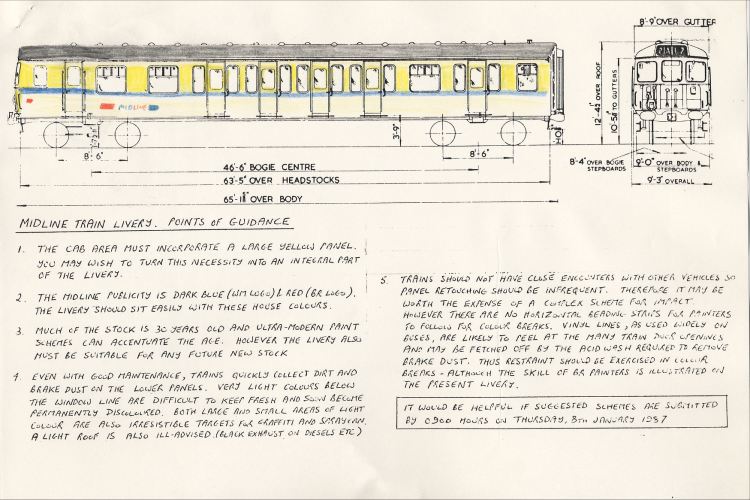 8'-9" OVER GUTTER
MIDLINE
12'-4½" OVER ROOF
10'-5⅞" TO GUTTERS
3'-9"
8'-6"
8'-6"
46'-6" BOGIE CENTRE
63'-5" OVER HEADSTOCKS
65'-1⅝" OVER BODY
8'-4" OVER BOGIE STEPBOARDS
9'-0" OVER BODY & STEPBOARDS
9'-3" OVERALL
MIDLINE TRAIN LIVERY. POINTS OF GUIDANCE
1. THE CAB AREA MUST INCORPORATE A LARGE YELLOW PANEL.
YOU MAY WISH TO TURN THIS NECESSITY INTO AN INTEGRAL PART
OF THE LIVERY.
2. THE MIDLINE PUBLICITY IS DARK BLUE (WM LOGO) & RED (BR LOGO).
THE LIVERY SHOULD SIT EASILY WITH THESE HOUSE COLOURS.
3. MUCH OF THE STOCK IS 30 YEARS OLD AND ULTRA-MODERN PAINT
SCHEMES CAN ACCENTUATE THE AGE. HOWEVER THE LIVERY ALSO
MUST BE SUITABLE FOR ANY FUTURE NEW STOCK
4. EVEN WITH GOOD MAINTENANCE, TRAINS QUICKLY COLLECT DIRT AND
BRAKE DUST ON THE LOWER PANELS. VERY LIGHT COLOURS BELOW
THE WINDOW LINE ARE DIFFICULT TO KEEP FRESH AND SOON BECOME
PERMANENTLY DISCOLOURED. BOTH LARGE AND SMALL AREAS OF LIGHT
COLOUR ARE ALSO IRRESISTIBLE TARGETS FOR GRAFFITI AND SPRAYCAN.
A LIGHT ROOF IS ALSO ILL-ADVISED (BLACK EXHAUST ON DIESELS ETC)
5. TRAINS SHOULD NOT HAVE CLOSE ENCOUNTERS WITH OTHER VEHICLES SO
PANEL RETOUCHING SHOULD BE INFREQUENT. THEREFORE IT MAY BE
WORTH THE EXPENSE OF A COMPLEX SCHEME FOR IMPACT.
HOWEVER THERE ARE NO HORIZONTAL BEADING STRIPS FOR PAINTERS
TO FOLLOW FOR COLOUR BREAKS. VINYL LINES, AS USED WIDELY ON
BUSES, ARE LIKELY TO PEEL AT THE MANY TRAIN DOOR OPENINGS
AND MAY BE FETCHED OFF BY THE ACID WASH REQUIRED TO REMOVE
BRAKE DUST. THUS RESTRAINT SHOULD BE EXERCISED IN COLOUR
BREAKS - ALTHOUGH THE SKILL OF BR PAINTERS IS ILLUSTRATED ON
THE PRESENT LIVERY.
IT WOULD BE HELPFUL IF SUGGESTED SCHEMES ARE SUBMITTED
BY 0900 HOURS ON THURSDAY, 8TH JANUARY 1987